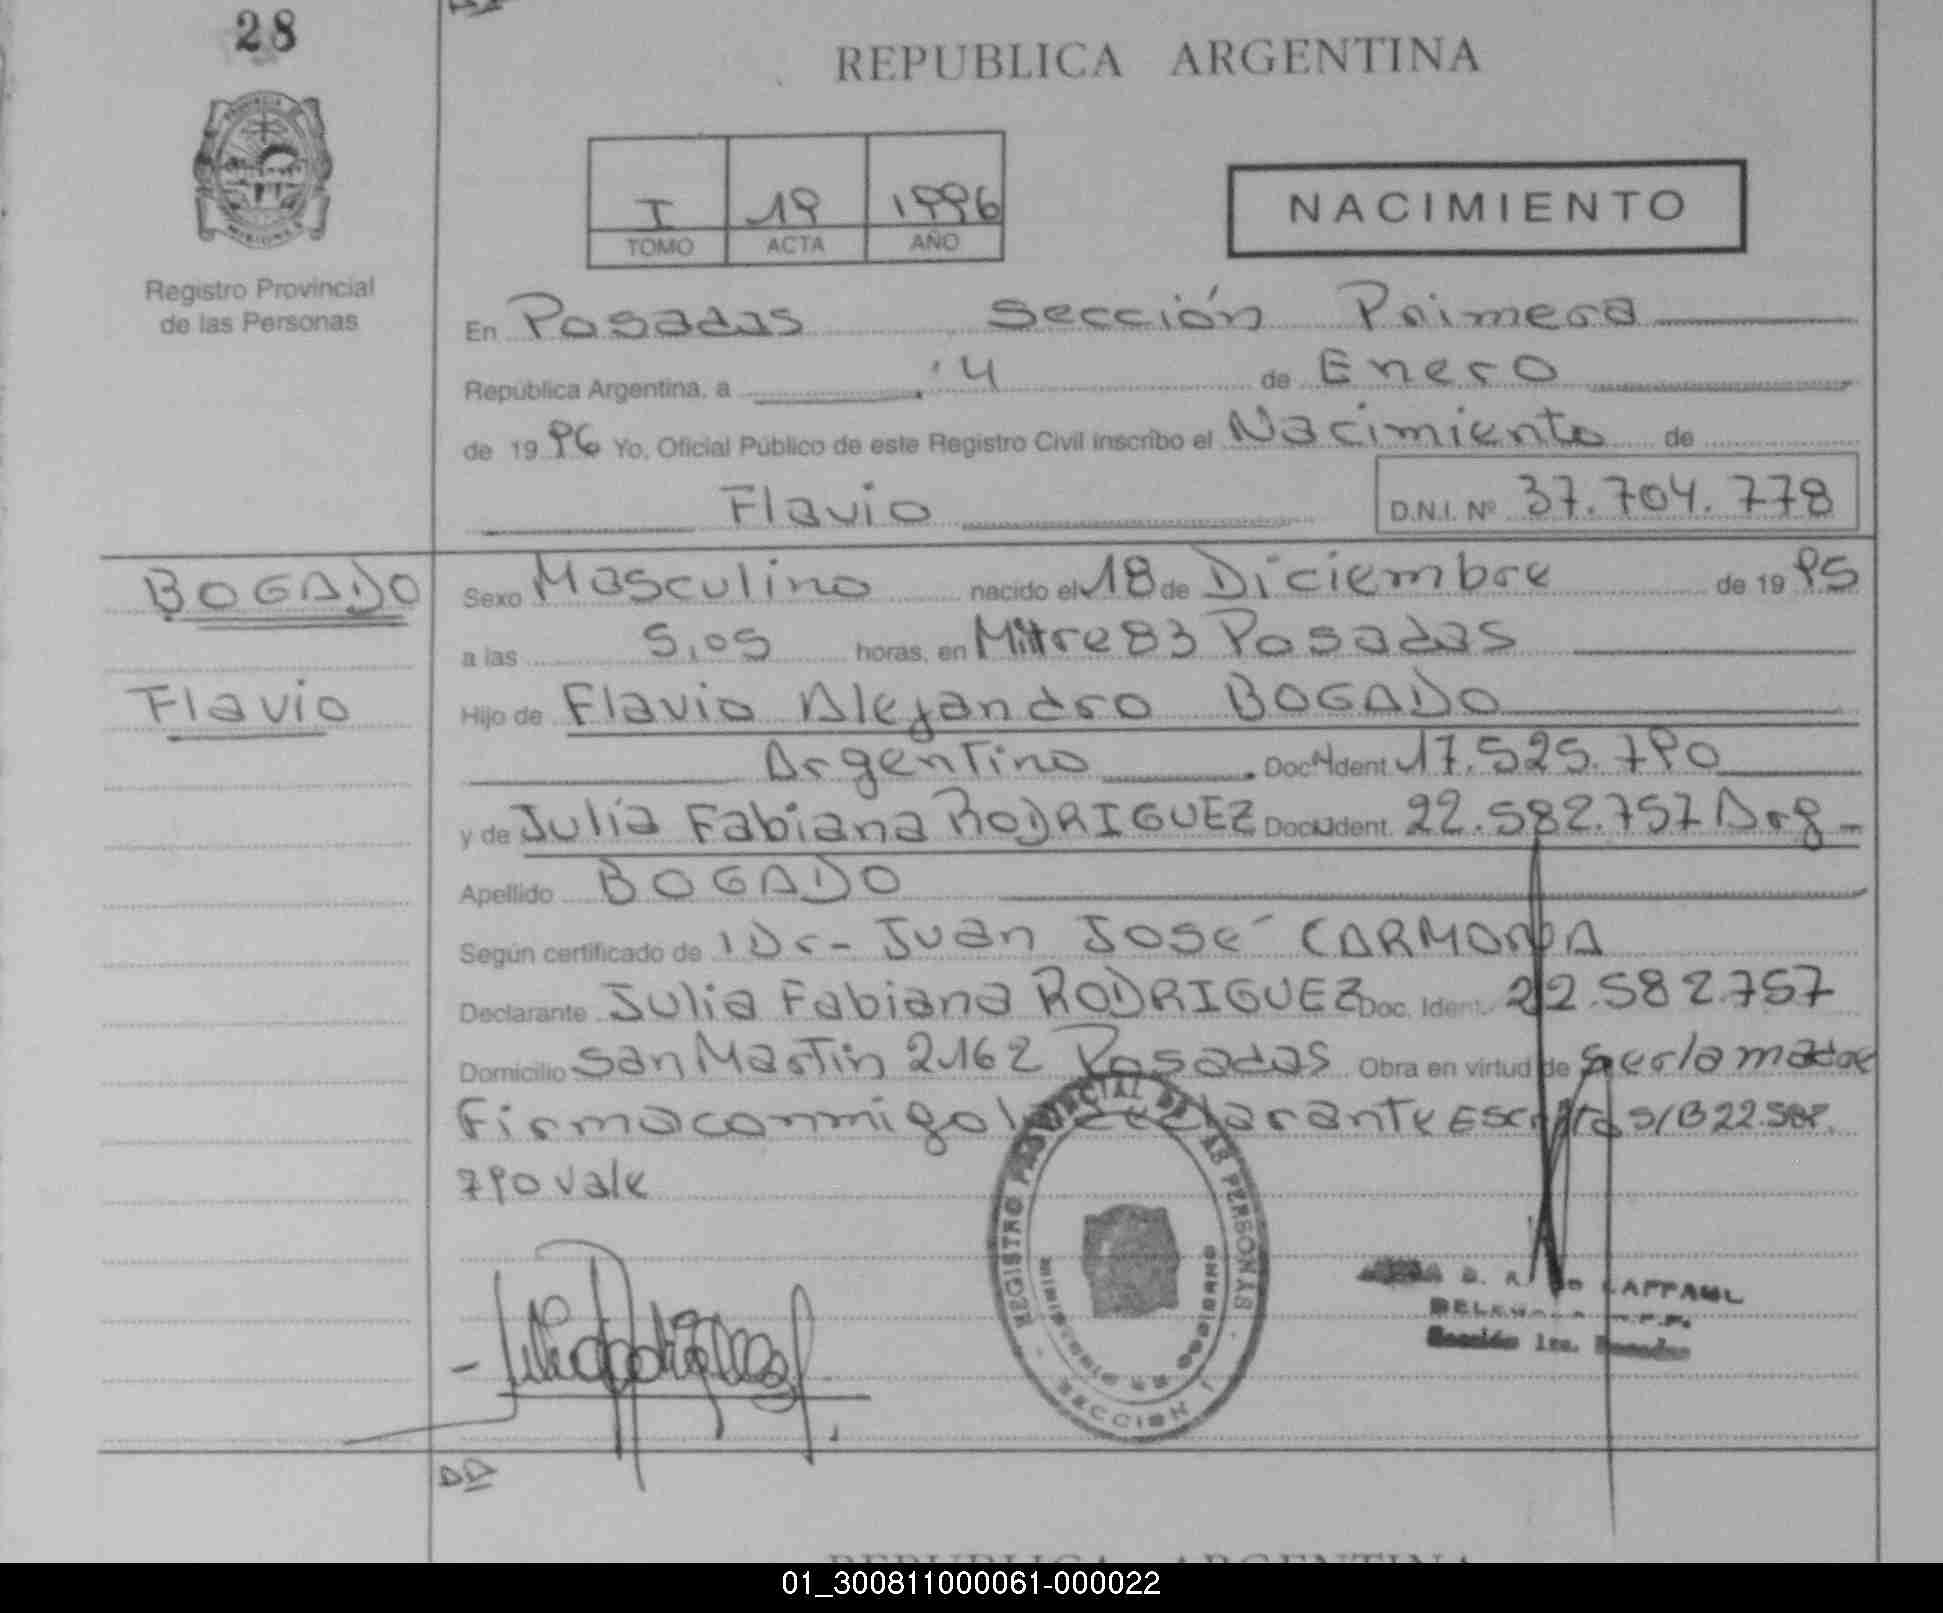 28
REPUBLICA ARGENTINA
PROVINCIA
MISIONES
Registro Provincial
de las Personas
I 19 1996
TOMO ACTA AÑO
NACIMIENTO
En Posadas Sección Primera
República Argentina, a 4 de Enero
de 1996 Yo, Oficial Público de este Registro Civil inscribo el Nacimiento de
Flavio D.N.I. Nº 37.704.778
BOGADO
Flavio
Sexo Masculino nacido el 18 de Diciembre de 1995
a las 5,05 horas, en Mitre 83 Posadas
Hijo de Flavio Alejandro BOGADO
Argentino Doc. Ident. 17.525.790
y de Julia Fabiana RODRIGUEZ Doc. Ident. 22.582.757 Arg-
Apellido BOGADO
Según certificado de Dr- Juan José CARMONA
Declarante Julia Fabiana RODRIGUEZ Doc. Ident. 22.582.757
Domicilio San Martin 2162 Posadas Obra en virtud de ser la madre
Firma conmigo la declarante Escrito s/B 22.582.
790 vale
REGISTRO PROVINCIAL DE LAS PERSONAS
MINISTERIO DE GOBIERNO
SECCION 1
Sección 1ra. Posadas
REPUBLICA ARGENTINA
01_300811000061-000022